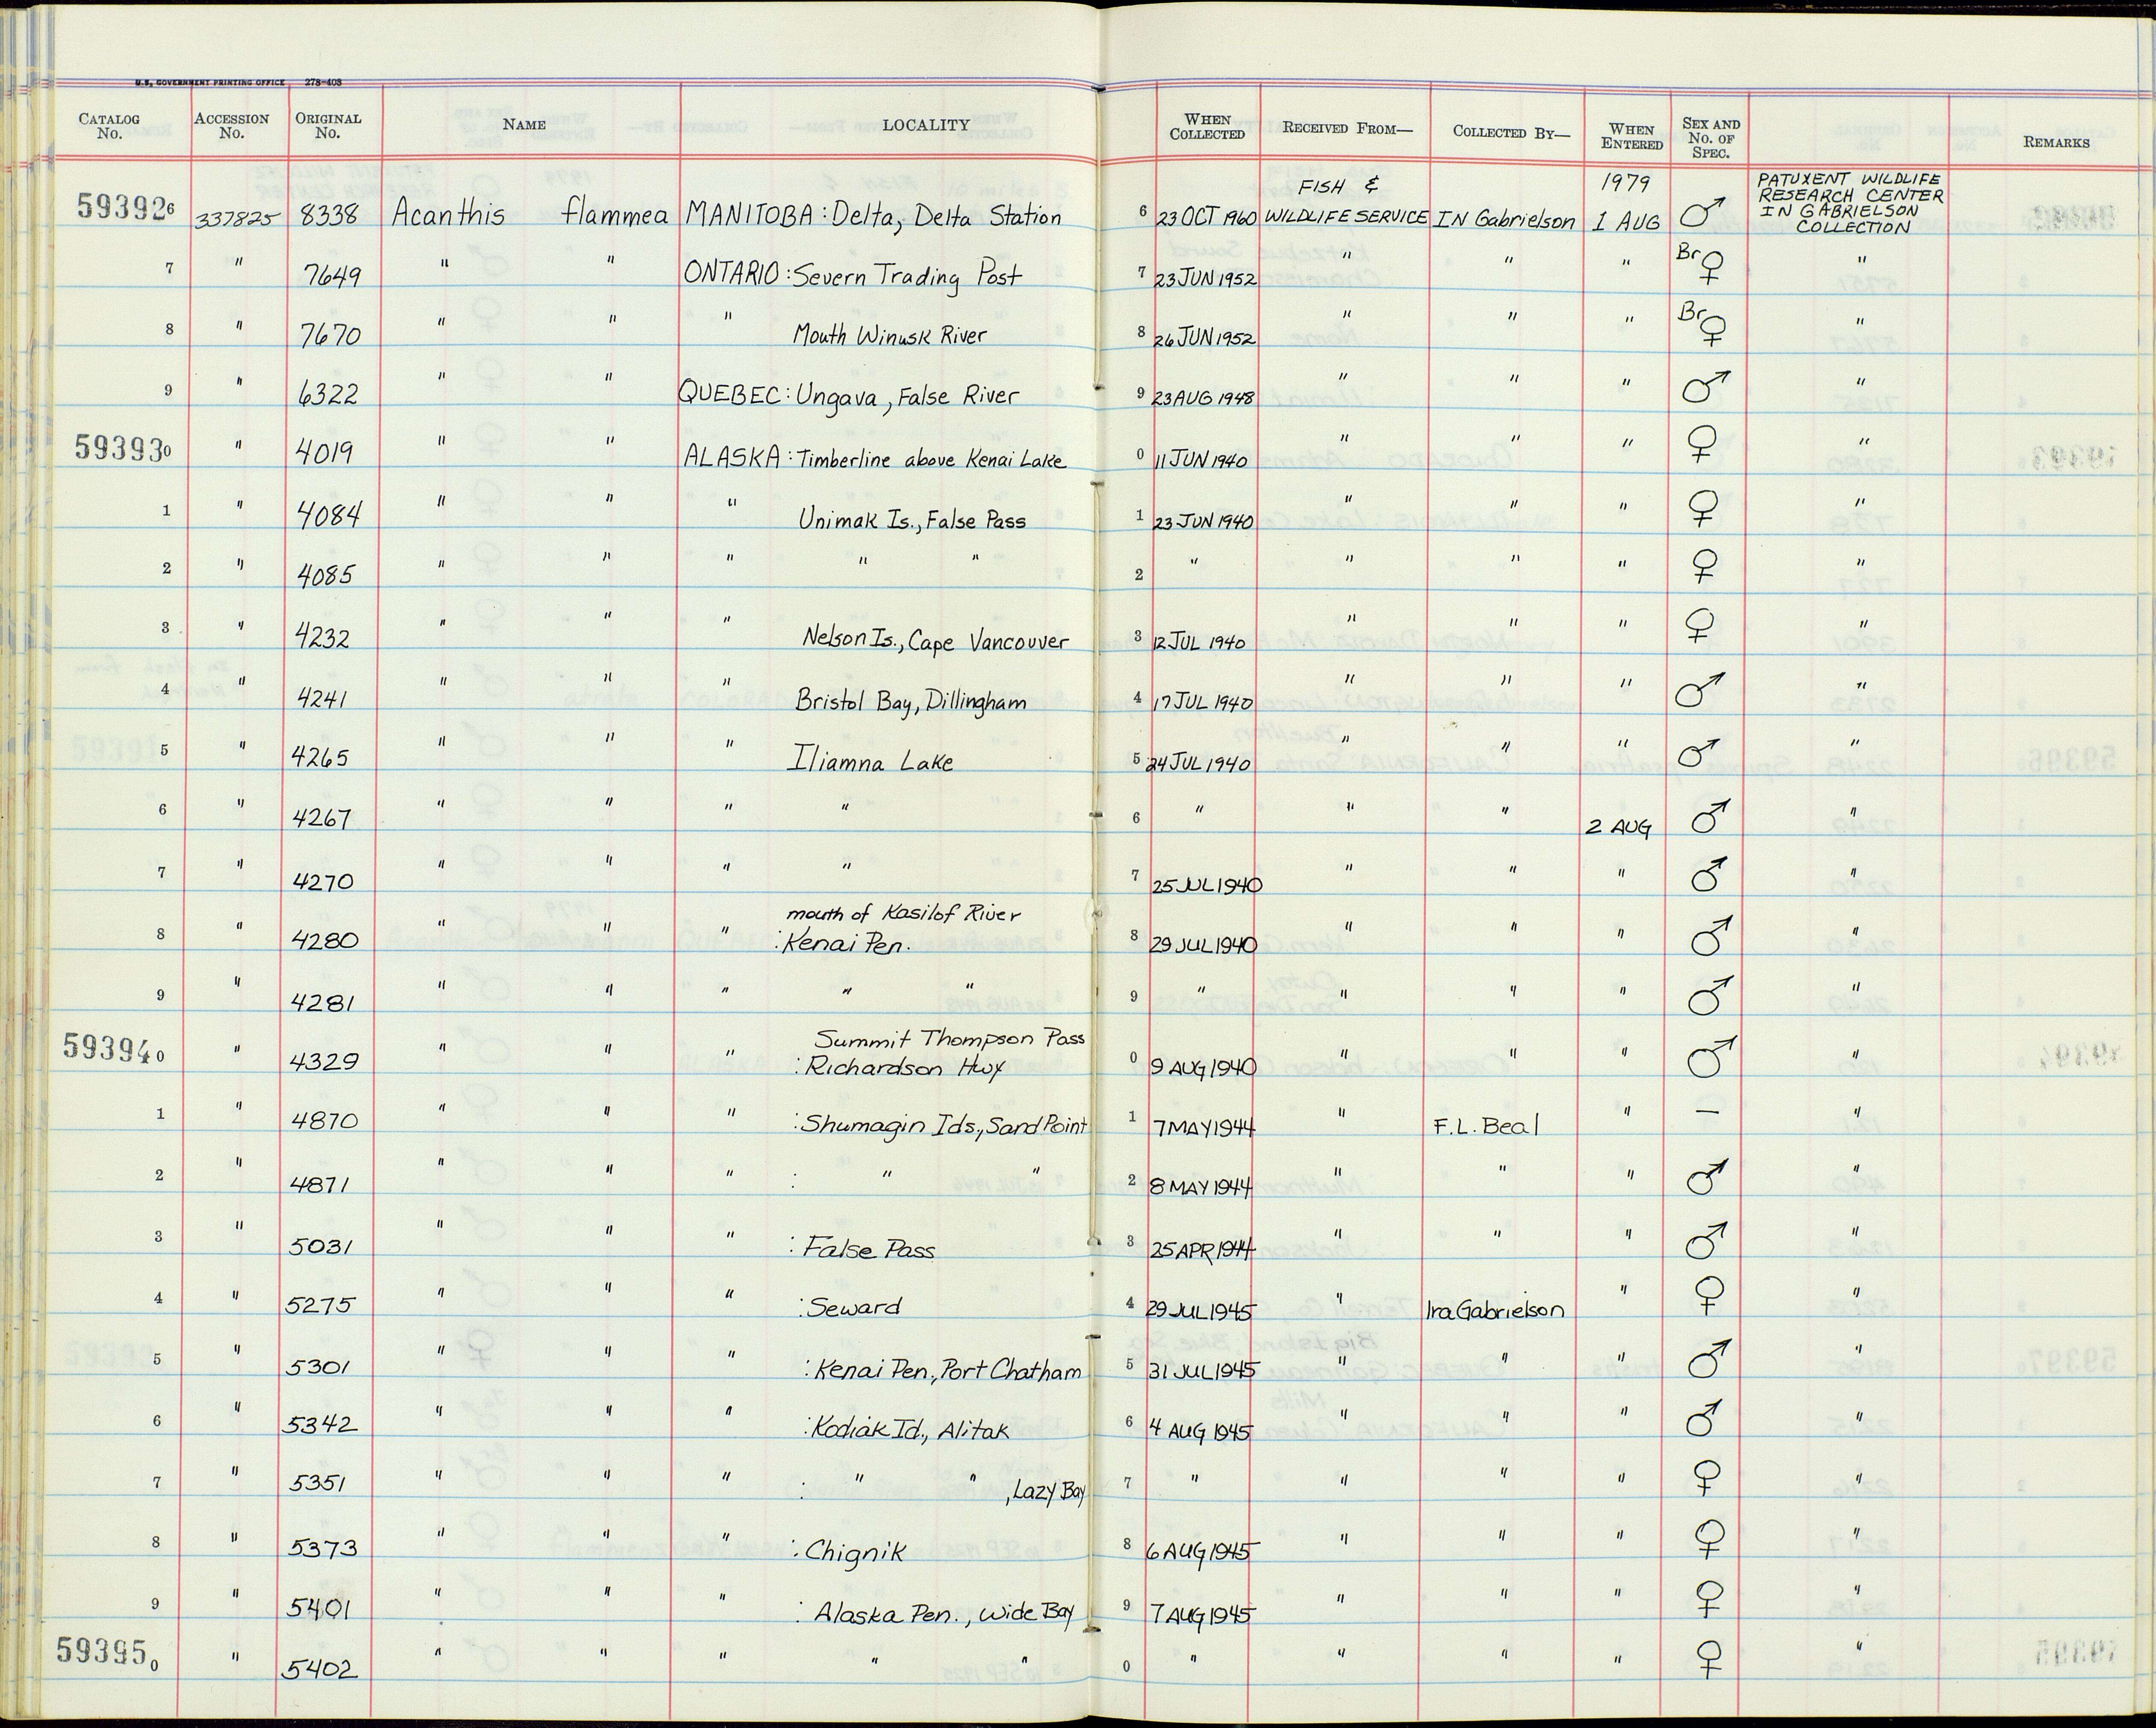 U.S. GOVERNMENT PRINTING OFFICE 278-403
CATALOG No. ACCESSION No. ORIGINAL No. NAME LOCALITY WHEN COLLECTED RECEIVED FROM— COLLECTED BY— WHEN ENTERED SEX AND No. OF SPEC. REMARKS
593926 337825 8338 Acanthis flammea MANITOBA: Delta, Delta Station 6 23 OCT 1960 FISH & WILDLIFE SERVICE IN Gabrielson 1979 1 AUG ♂ PATUXENT WILDLIFE RESEARCH CENTER IN GABRIELSON COLLECTION
7 " 7649 " " ONTARIO: Severn Trading Post 7 23 JUN 1952 " " " Br ♀ "
8 " 7670 " " " Mouth Winusk River 8 26 JUN 1952 " " " Br ♀ "
9 " 6322 " " QUEBEC: Ungava, False River 9 23 AUG 1948 " " " ♂ "
593930 " 4019 " " ALASKA: Timberline above Kenai Lake 0 11 JUN 1940 " " " ♀ "
1 " 4084 " " " Unimak Is., False Pass 1 23 JUN 1940 " " " ♀ "
2 " 4085 " " " " " 2 " " " " ♀ "
3 " 4232 " " " Nelson Is., Cape Vancouver 3 12 JUL 1940 " " " ♀ "
4 " 4241 " " " Bristol Bay, Dillingham 4 17 JUL 1940 " " " ♂ "
5 " 4265 " " " Iliamna Lake 5 24 JUL 1940 " " " ♂ "
6 " 4267 " " " " 6 " " " 2 AUG ♂ "
7 " 4270 " " " " 7 25 JUL 1940 " " " ♂ "
8 " 4280 " " " mouth of Kasilof River : Kenai Pen. 8 29 JUL 1940 " " " ♂ "
9 " 4281 " " " " " 9 " " " " ♂ "
593940 " 4329 " " " Summit Thompson Pass : Richardson Hwy 0 9 AUG 1940 " " " ♂ "
1 " 4870 " " " : Shumagin Ids., Sand Point 1 7 MAY 1944 " F.L. Beal " — "
2 " 4871 " " " : " " 2 8 MAY 1944 " " " ♂ "
3 " 5031 " " " : False Pass 3 25 APR 1944 " " " ♂ "
4 " 5275 " " " : Seward 4 29 JUL 1945 " Ira Gabrielson " ♀ "
5 " 5301 " " " : Kenai Pen., Port Chatham 5 31 JUL 1945 " " " ♂ "
6 " 5342 " " " : Kodiak Id., Alitak 6 4 AUG 1945 " " " ♂ "
7 " 5351 " " " : " " , Lazy Bay 7 " " " " ♀ "
8 " 5373 " " " : Chignik 8 6 AUG 1945 " " " ♀ "
9 " 5401 " " " : Alaska Pen., Wide Bay 9 7 AUG 1945 " " " ♀ "
593950 " 5402 " " " " " 0 " " " " ♀ "